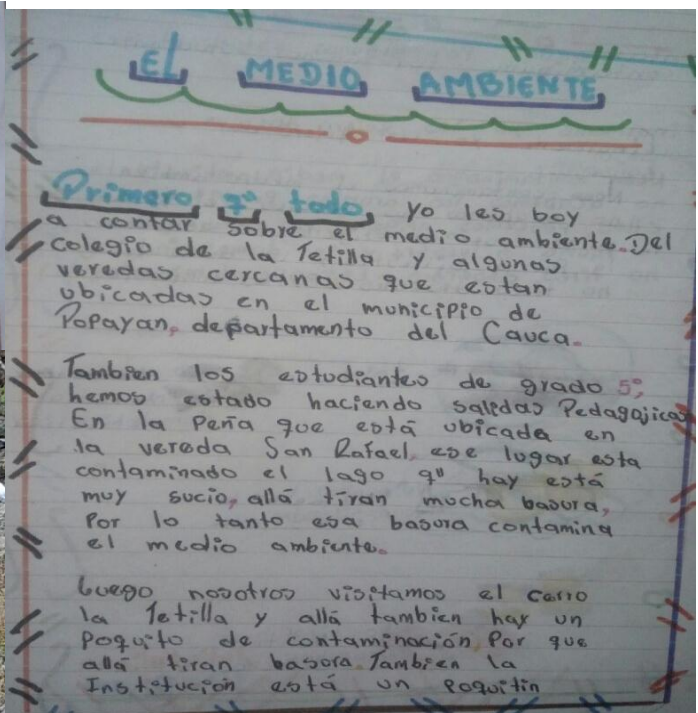 EL MEDIO AMBIENTE
Primero qº todo yo les boy
a contar sobre el medio ambiente. Del
colegio de la Tetilla y algunas
veredas cercanas que estan
ubicadas en el municipio de
Popayan, departamento del Cauca.
Tambien los estudiantes de grado 5º,
hemos estado haciendo salidas Pedagojicas
En la Peña que está ubicada en
la vereda San Rafael, ese lugar esta
contaminado el lago qº hay está
muy sucio, allá tiran mucha basura,
Por lo tanto esa basura contamina
el medio ambiente.
Luego nosotros visitamos el cerro
la Tetilla y allá tambien hay un
Poquito de contaminación, Por que
allá tiran basura. Tambien la
Institución está un poquitin